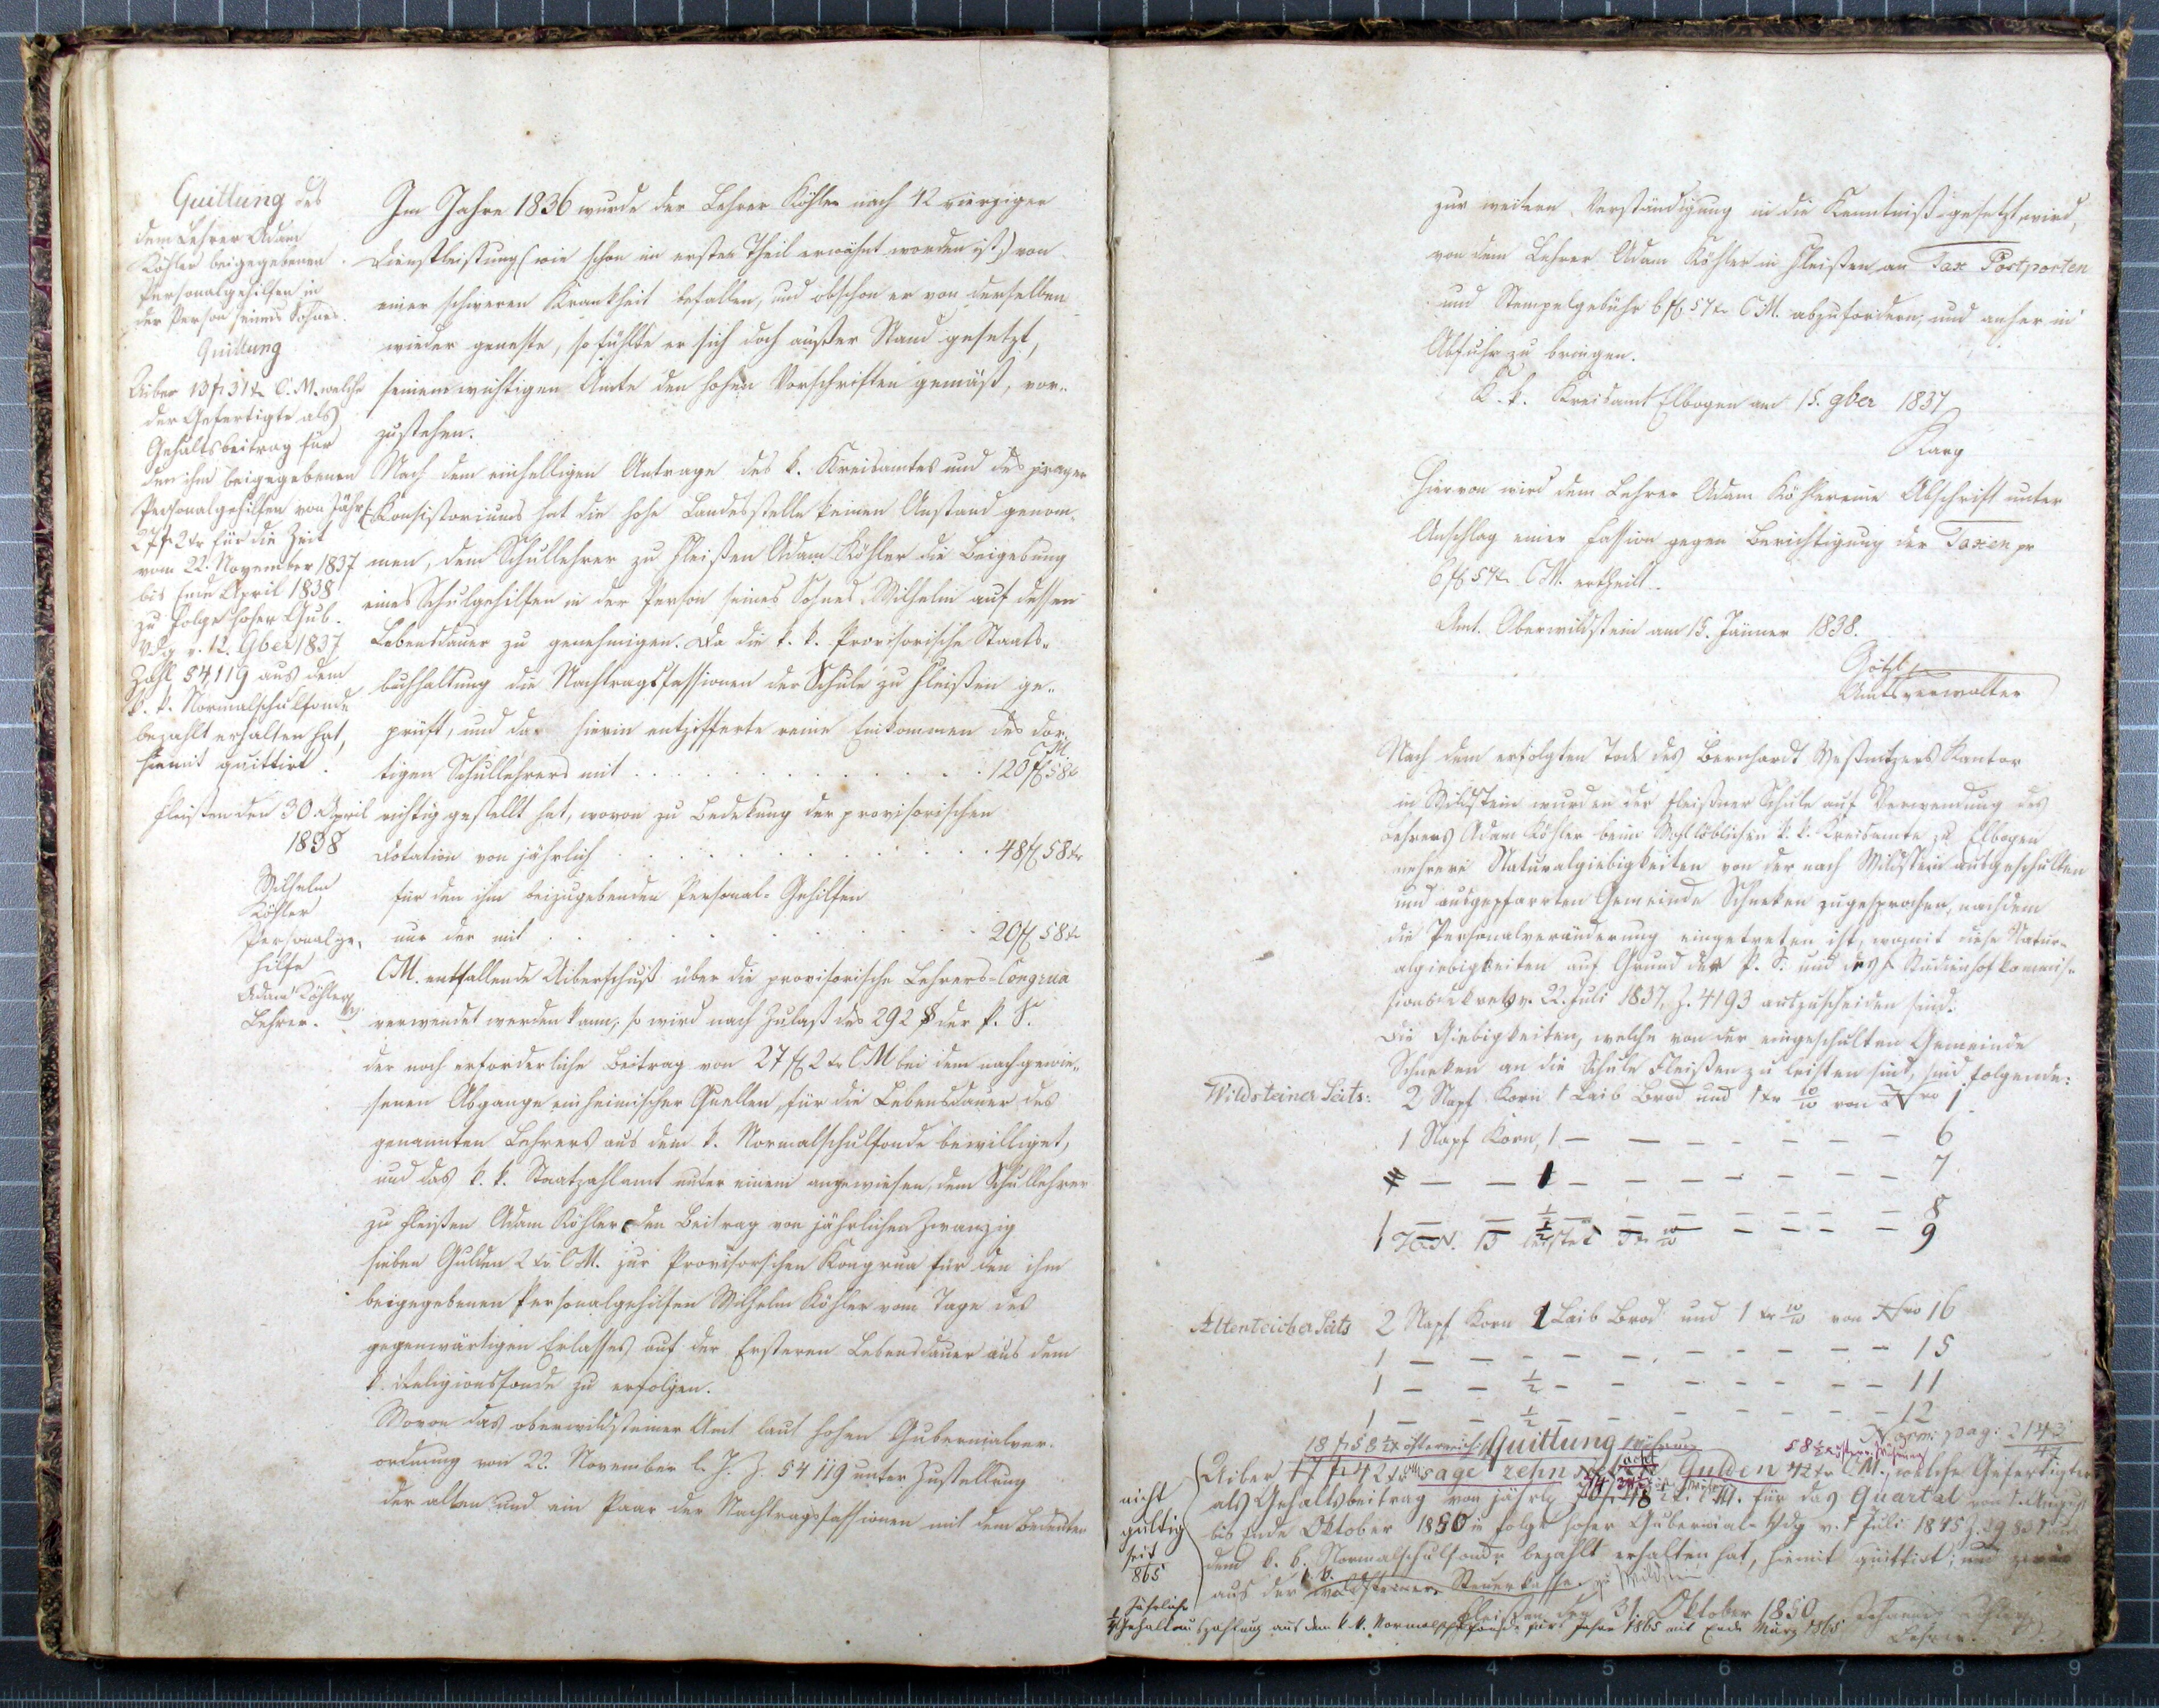 Quittung des
dem Lehrer Adam
Köhler beigegebenen
Personalgehilfen in
der Person seines Sohnes.
Quittung
Uiber 13 f 31 kr C. M. welche
der Gefertigte als
Gehaltsbeitrag für
den ihm beigegebenen
Personalgehilfen von Jähr
27 f 2 kr für die Zeit
vom 22. November 1837
bis Ende April 1838
zu Folge hoher Gub.
Vdg v. 12. 9ber 1837
Zahl 54,119 aus dem
k. k. Normalschulfonde
bezahlt erhalten hat,
hiemit quittirt.
Fleißen den 30. April
1838
Wilhelm
Köhler
Personalge-
hilfe
Adam Köhler
Lehrer.
Im Jahre 1836 wurde der Lehrer Köhler nach 42 vierziger
Dienstleistung (wie schon im ersten Theil erwähnt worden ist) von
einer schweren Krankheit befallen, und obschon er von derselben
wieder geneste, so fühlte er sich doch außer Stand gesetzt,
seinem wichtigen Amte den hohen Vorschriften gemäß, vor-
zustehen.
Nach dem einhelligen Antrage des k. Kreisamtes und des prager
Konsistoriums hat die hohe Landesstelle keinen Anstand genom-
men, dem Schullehrer zu Fleißen Adam Köhler die Beigebung
eines Schulgehilfen in der Person seines Sohnes Wilhelm auf dessen
Lebensdauer zu genehmigen. Da die k. k. Provisorische Staats-
buchhaltung die Nachtragsfassionen der Schule zu Fleißen ge-
prüft, und das hierin entzifferte reine Einkommen des dor-
tigen Schullehrers mit . . . . . . . . 120 f 58 CM
richtig gestellt hat, wovon zu Bedekung der provisorischen
Dotation von jährlich . . . . . . . . 48 f 58 kr
für den ihm beizugebenden Personal-Gehilfen
nur der mit . . . . . . . . 20 f 58 kr
CM. entfallende Uiberschuß über die provisorische Lehrers-Congrua
verwendet werden kann; so wird nach Zulaß des 292 § der P. S.
der noch erforderliche Beitrag von 27 f 2 kr CM bei dem nachgewie-
senen Abgange einheimischer Quellen für die Lebensdauer des
genannten Lehrers aus dem k. Normalschulfonde bewilliget,
und das k. k. Staatzahlamt unter einem angewiesen, dem Schullehrer
zu Fleißen Adam Köhler den Beitrag von jährlichen Zwanzig
sieben Gulden 2 kr CM. zur Provisorischen Kongrua für den ihm
beigegebenen Personalgehilfen Wilhelm Köhler vom Tage des
gegenwärtigen Erlasses auf der Ersteren Lebensdauer aus dem
k. Religionsfonde zu erfolgen.
Wovon das oberwildsteiner Amt laut hohen Gubernialver-
ordnung von 22. November l. J. Z. 54119 unter Zustellung
der alten und ein Paar der Nachtragsfassionen mit dem Bedeuten
zur weitern Verständigung in die Kenntniß gesetzt wird,
von dem Lehrer Adam Köhler in Fleißen an Tax Postporten
und Stempelgebühr 6 f 57 kr CM. abzufordern, und anher in
Abfuhr zu bringen.
K. k. Kreisamt Elbogen am 15. 9ber 1837
Karg
Hievon wird dem Lehrer Adam Köhler eine Abschrift unter
Anschlag einer Fassion gegen Berichtigung der Taxen pr
6 f 57 kr CM. ertheilt.
Amt. Oberwildstein am 15. Jänner 1838.
Götzl
Amtsverwalter
Nach dem erfolgten Tode des Bernhardt Kantor
in Wildstein wurden der Fleißner Schule auf Verwendung des
Lehrers Adam Köhler beim Wohllöblichen k. k. Kreisamte zu Elbogen
mehrere Naturalgiebigkeiten von der nach Wildstein ausgeschulten
und ausgepfarrten Gemeinde Schneken zugesprochen, nachdem
die Personalveränderung eingetreten ist, womit diese Natur-
algiebigkeiten auf Grund der P. S. und des h Studienhofkommis-
sionsdekrets v. 22. Juli 1837, Z. 4193 auszuscheiden sind.
Die Giebigkeiten, welche von der eingeschulten Gemeinde
Schneken an die Schule Fleißen zu leisten sind, sind folgende:
Wildsteiner Seits: 2 Napf Korn 1 Laib Brod und 1 kr von Nro 1
1 Napf Korn, 1 — — — — — — — 6
— — 1 — — — — — — — 7
1 — — ½ — — — — — — 8
1 — — ½ — — — — — 9
Altenteicher Seits 2 Napf Korn 1 Laib Brod und 1 kr von Nro 16
1 — — — — — — — — — 15
1 — — ½ — — — — — — 11
1 — — ½ — — — — — — 12
Norm: pag: 2143
18 f 58 ½ x österreich. Quittung Währung
Uiber 17 f 42 kr sage zehn acht Gulden 42 kr CM., welche Gefertigter
als Gehaltsbeitrag von jährl CM. für das Quartal von 1. August
bis Ende Oktober 1850 in Folge hoher Gubernial-Vdg v. 1 Juli 1845
dem k. k. Normalschulfonde bezahlt erhalten hat, hiemit quittirt; und zwar
aus der k. k. wildsteiner Steuerkasse zu Wildstein
Fleißen den 31. Oktober 1850
Lehrer.
nicht
gültig
seit
865
Jährliche
Gehaltauszahlung aus dem k. k. Normalschulfonde fürs Jahr 1865 mit Ende März 1865